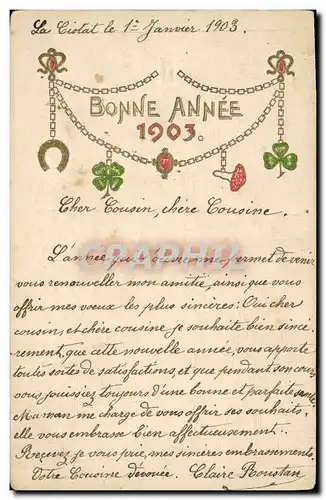 La Ciotat le 1er Janvier 1903.
BONNE ANNÉE
1903.
Cher Cousin, chère Cousine,
L'année qui s'ouvre me permet de venir
vous renouveller mon amitié, ainsi que vous
offrir mes voeux les plus sincères: Oui cher
cousin, et chère cousine je souhaite bien sincé-
rement, que cette nouvelle année, vous apporte
toutes sortes de satisfactions, et que pendant son cours
vous jouissiez toujours d'une bonne et parfaite santé
Maman me charge de vous offrir ses souhaits,
elle vous embrasse bien affectueusement.
Recevez je vous prie, mes sincères embrassements.
Votre Cousine dévouée. Claire Boustan
CPRPHIL